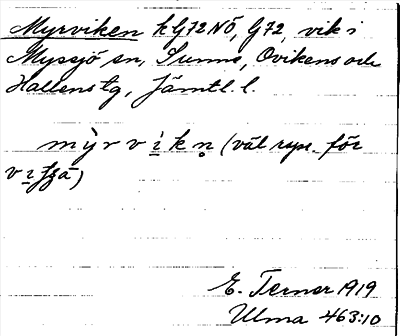 Myrviken k G72 NÖ, G72, vik i
Myssjö sn, Sunne, Ovikens och
Hallens tg, Jämtl. l.
mỳrvikn (väl rspr. för
E. Terner 1919
Ulma 463:10